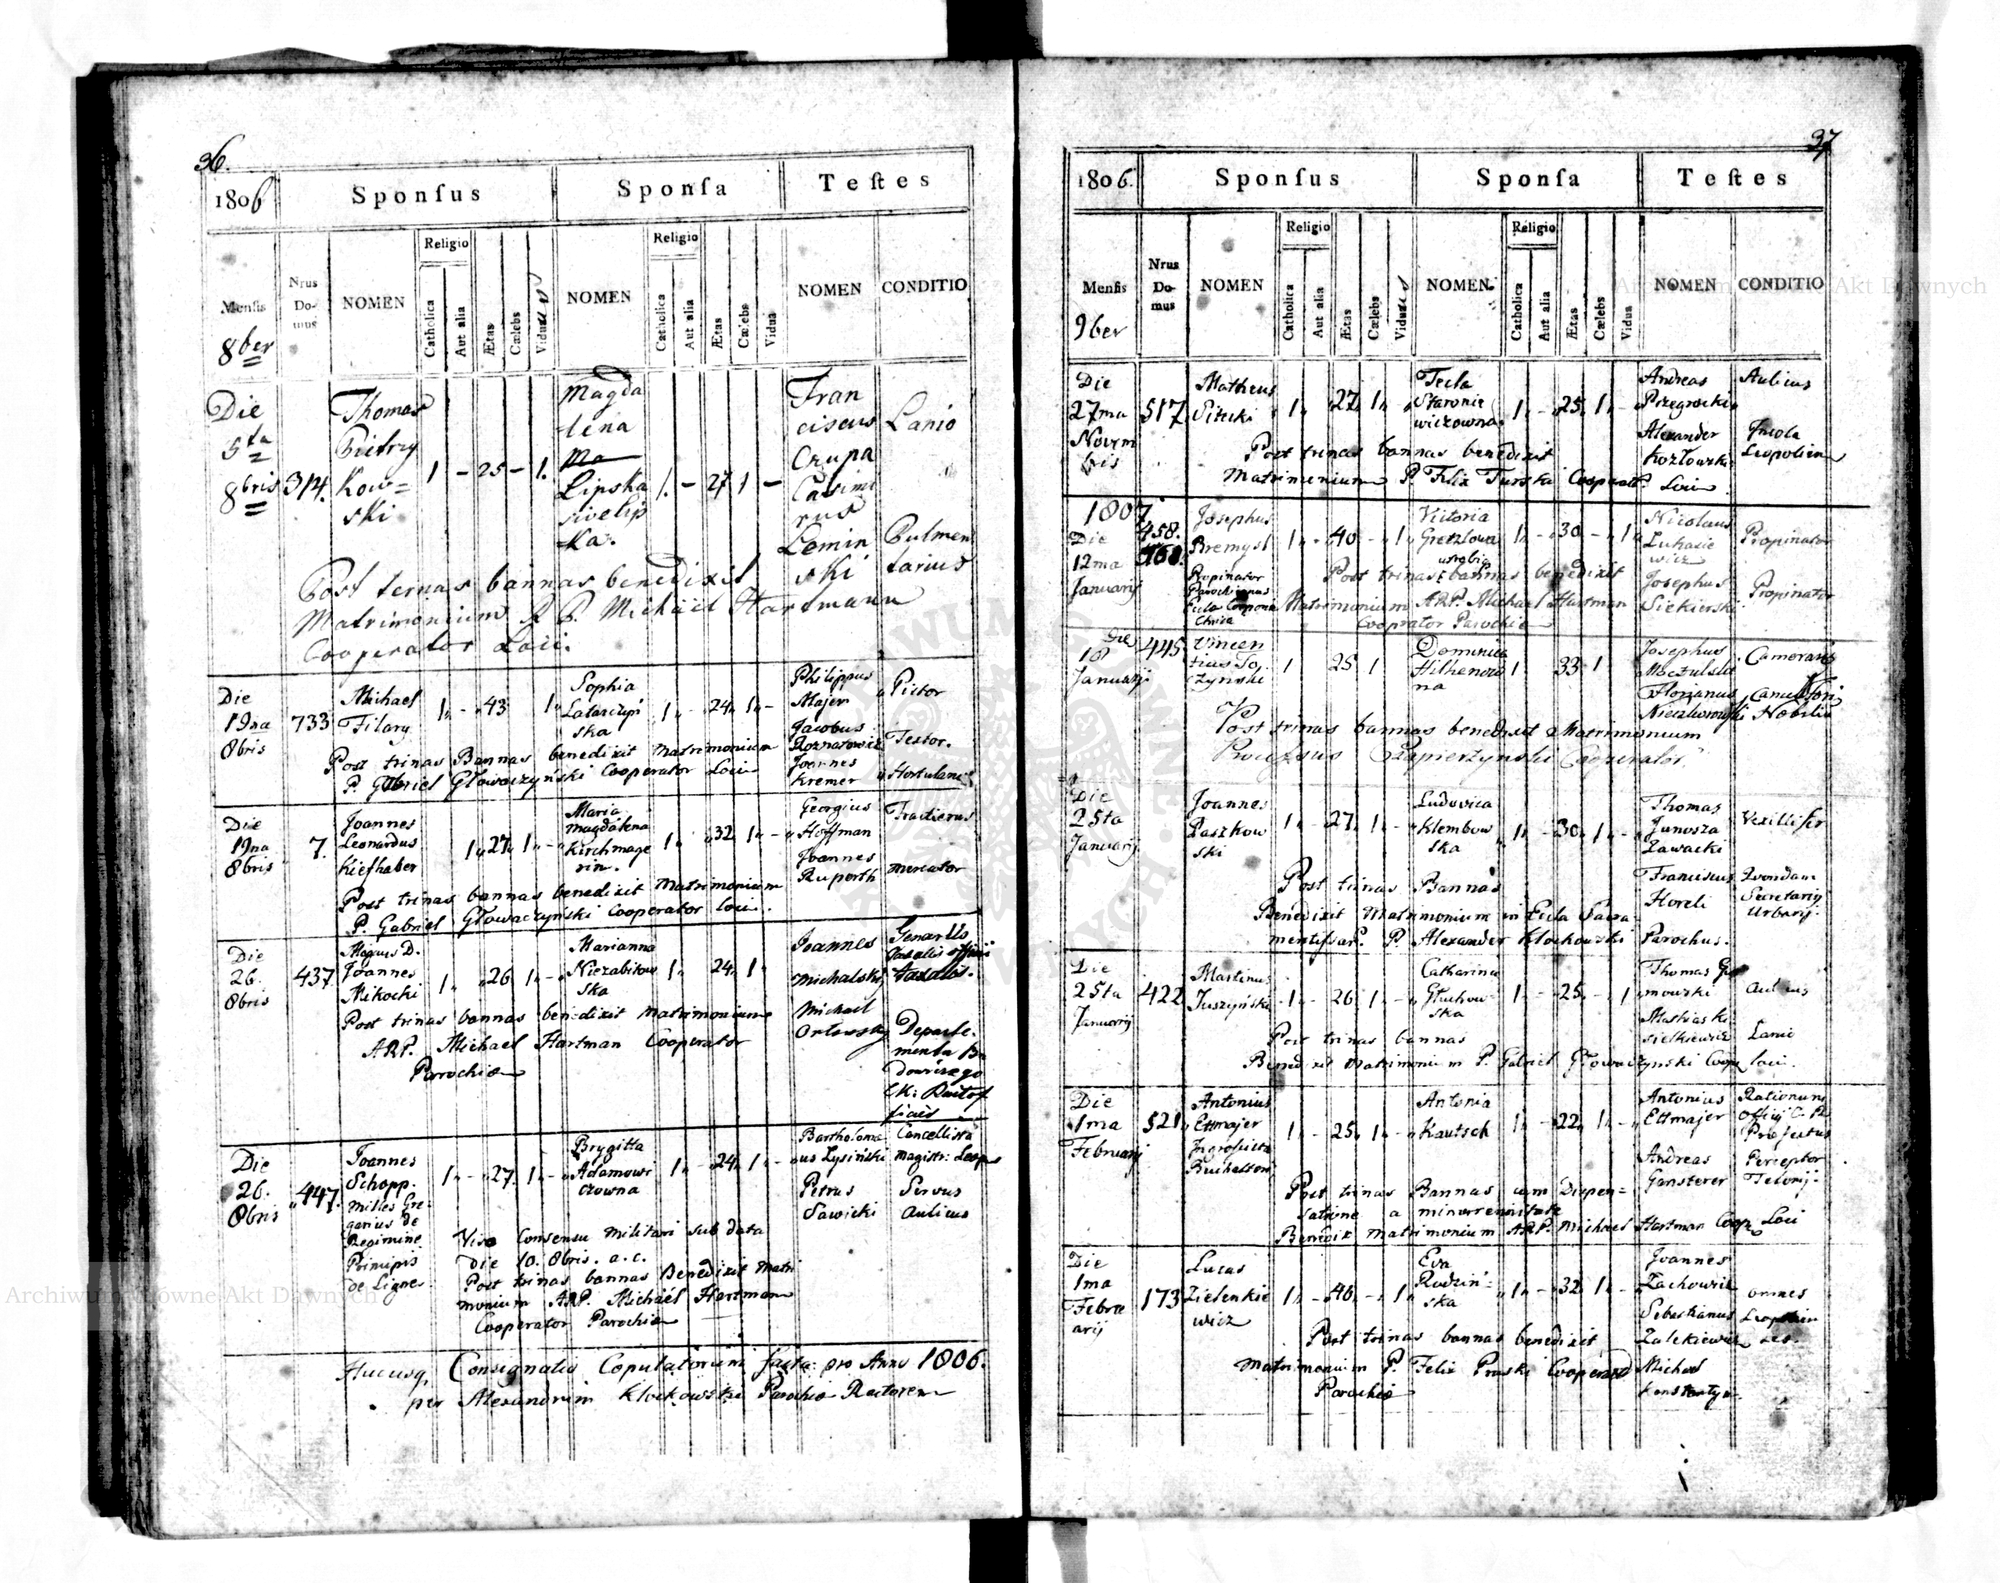 36.
1806 Sponsus Sponsa Testes
Mensis 8ber Nrus Domus NOMEN Religio Catholica Aut alia Ætas Cælebs Viduus NOMEN Religio Catholica Aut alia Ætas Cælebs Vidua NOMEN CONDITIO
Die 5ta 8bris 314. Thomas Pietrzy Kow= ski 1 - 25 - 1. Magda lena Lipska 1. - 27 1 - Fran ciscus Czupa Lanio
Casimi rus Lemin ski Pulmen tarius
Post ternas bannas benedixit
Matrimonium A P. Michael Hartmann
Cooperator Loci.
Die 19na 8bris 733 Michael Filary 1 - 43 1 Sophia Latarczyń ska 1 - 24 1 - Philippus Majer Pictor
Jacobus Roznatowicz Textor.
Joannes Kremer Hortulanus
Post trinas Bannas benedixit Matrimonium
P. Gabriel Głowaczynski Cooperator Loci
Die 19na 8bris 7. Joannes Leonardus Kiefhaber 1 27 1 - Maria Magdalena Kirchmaye rin. 1 32 1 - Georgius Hoffman Tractierus
Joannes Ruperth mercator
Post trinas bannas benedixit Matrimonium
P. Gabriel Głowaczynski Cooperator loci.
Die 26. 8bris 437. Magnus D. Joannes Mikocki 1 26 1 - Marianna Niezabitow ska 1 24 1 Joannes Michalski
Michael Orlowsky
Post trinas bannas benedixit matrimonium
ARP. Michael Hartman Cooperator
Parochiæ
Die 26. 8bris 447. Joannes Schopp. Milles Gre= garius de Regimine Principis de Lignes 1 - 27. 1 - Brygitta Adamowi czowna 1 - 24 1 - Bartholomæ us Lysiński Cancellista magistr: Leop
Petrus Sawicki Servus Aulicus
Viso Consensu Militari sub data
Die 10. 8bris. a.c.
Post trinas bannas Benedixit Matri
monium ARP. Michaël Hartman
Cooperator Parochiæ
Hucusq. Consignatio Copulatorum facta pro Anno 1806.
per Alexandrum Klockowski Parochiæ Rectorem
37
1806. Sponsus Sponsa Testes
Mensis 9ber Nrus Domus NOMEN Religio Catholica Aut alia Ætas Cælebs Viduus NOMEN Religio Catholica Aut alia Ætas Cælebs Vidua NOMEN CONDITIO
Die 27ma Novem bris 517. Matheus Sitecki 1 - 27 1 Tecla Staronie wiczowna 1 - 25 1 - Andreas Przegrocki Aulicus
Alexander Kozłowski Incola Leopolien
Post trinas bannas benedixit
Matrimonium P. Felix Turski Cooperat. Loci
1807
Die 12ma Januarij 458. Josephus Bremysl Propinator 1 - 40 - 1 Victoria 1 - 30 - 1 Nicolaus Lukasie wicz Propinator
Josephus Siekierski Propinator
Post trinas bannas benedixit
Matrimonium ARP. Michael Hartman
Cooperator Parochiæ
Die 18 Januarij 445 Vincen tius 1 25 1 Dominica Hilkenow na 1 33 1 Josephus
Florianus
Post trinas bannas benedixit Matrimonium
Cooperator
Die 25ta Januarij Joannes Paszkow ski 1 - 27 1 - Ludovica Klembow ska 1 - 30 1 - Thomas Junosza Zawacki Vexillifer
Franciscus Horeli Quondam Secretarij Urbarij
Post trinas Bannas
Benedixit Matrimonium in Ecla Sacra
mentissar. P. Alexander Klockowski Parochus.
Die 25ta Januarij 422. Martinus Juszyński 1 - 26 1 - Catharina Głuchow= ska 1 - 25 - 1 Thomas
Mathias
Lanio
Post trinas bannas
Benedixit Matrimonium P. Gabriel Głowaczynski Coop. loci.
Die 1ma Februarij 521. Antonius Ettmajer 1 - 25 1 - Antonia Kautsch 1 - 22 1 - Antonius Ettmajer
Andreas Gansterer Perceptor
Post trinas Bannas cum Dispen=
satione a minorennitate
Benedix Matrimonium ARP. Michael Hartman Coop. Loci
Die 1ma Febru arij 173 Lucas Zielenkie wicz 1 - 40 - 1 Eva Rudziń= ska 1 - 32 1 - Joannes Zachowicz omnes
Sebastianus Zalekiewicz
Michael
Post trinas bannas benedixit
Matrimonium P. Felix Cooperator
Parochiæ
Archiwum Główne Akt Dawnych